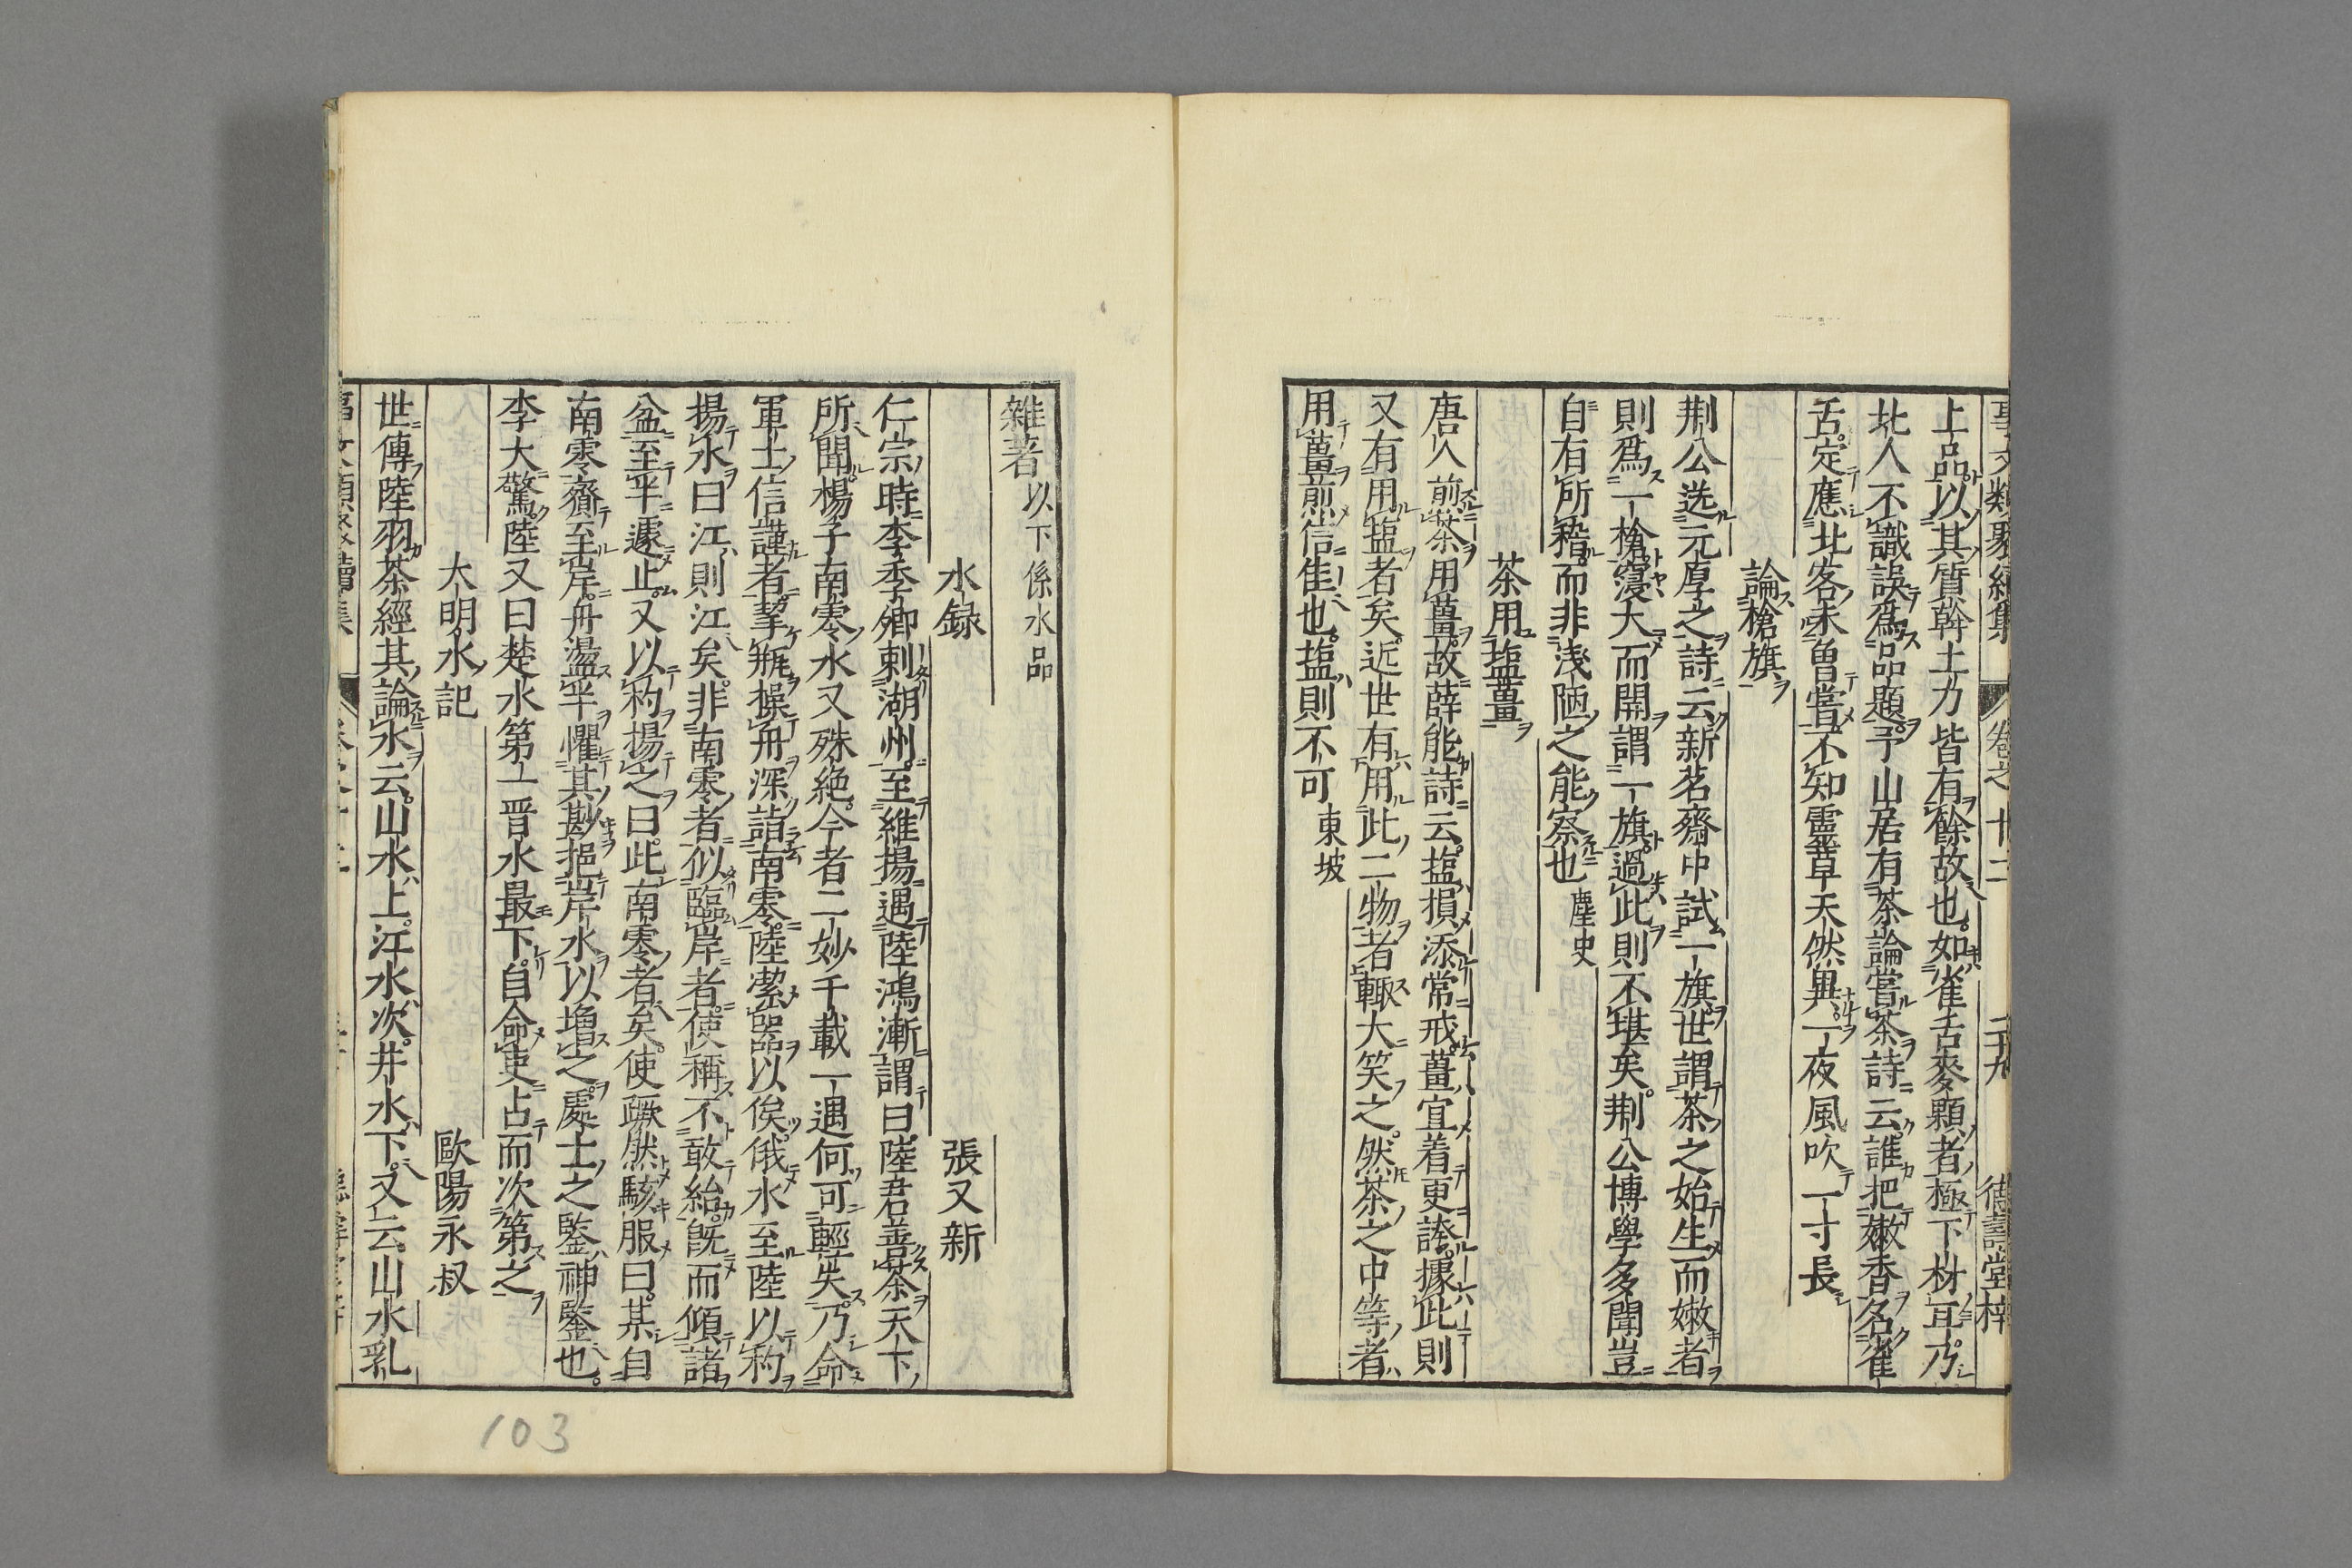 事文類聚續集 卷之十二 二十九 德壽堂梓
上品以其質幹土力皆有餘故也如雀舌麥顆者極下材耳乃
北人不識誤爲品題予山居有茶論嘗茶詩云誰把嫩香名雀
舌定應北客未曽嘗不知靈草天然異一夜風吹一寸長
論槍旗
荆公送元厚之詩云新茗齋中試一旗世謂茶之始生而嫩者
則爲一槍寖大而開謂一旗過此則不堪矣荆公博學多聞豈
自有所稽而非淺陋之能察也 塵史
茶用塩薑
唐人煎茶用薑故薛能詩云塩損添常戒薑宜着更誇據此則
又有用塩者矣近世有用此二物者輙大笑之然茶之中等者
用薑煎信佳也塩則不可 東坡
雜著 以下係水品
水録 張又新
仁宗時李季卿剌湖州至維揚遇陸鴻漸謂曰陸君善茶天下
所聞楊子南零水又殊絶今者二妙千載一遇何可輕失乃命
軍士信謹者挈瓶操舟深詣南零陸潔器以俟俄水至陸以杓
揚水曰江則江矣非南零者似臨岸者使稱不敢紿旣而傾諸
盆至半遽止又以杓揚之曰此南零者矣使蹶然駭服曰某自
南零齎至岸舟盪半懼其尠挹岸水以增之處士之鑒神鑒也
李大驚陸又曰楚水第一晋水最下自命吏占而次第之
大明水記 歐陽永叔
世傳陸羽茶經其論水云山水上江水次井水下又云山水乳
103